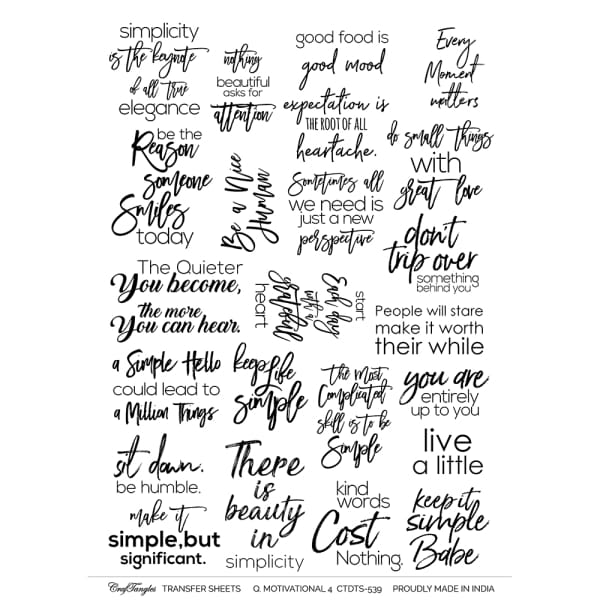 simplicity
is the keynote
of all true
elegance
nothing
beautiful
asks for
attention
good food is
good mood
Every
Moment
matters
be the
Reason
Someone
Smiles
today
Be a Nice
Human
expectation is
THE ROOT OF ALL
heartache.
do small things
with
great love
Sometimes all
we need is
just a new
perspective
don't
trip over
something
behind you
The Quieter
You become,
the more
You can hear.
start
Each day
with a
grateful
heart
People will stare
make it worth
their while
a Simple Hello
could lead to
a Million Things
keep Life
simple
the Most
Complicated
skill is to be
Simple
you are
entirely
up to you
live
a little
sit down.
be humble.
There
is
beauty
in
simplicity
kind
words
Cost
Nothing.
keep it
simple
Babe
make it
simple,but
significant.
CrafTangles TRANSFER SHEETS Q. MOTIVATIONAL 4 CTDTS-539 PROUDLY MADE IN INDIA